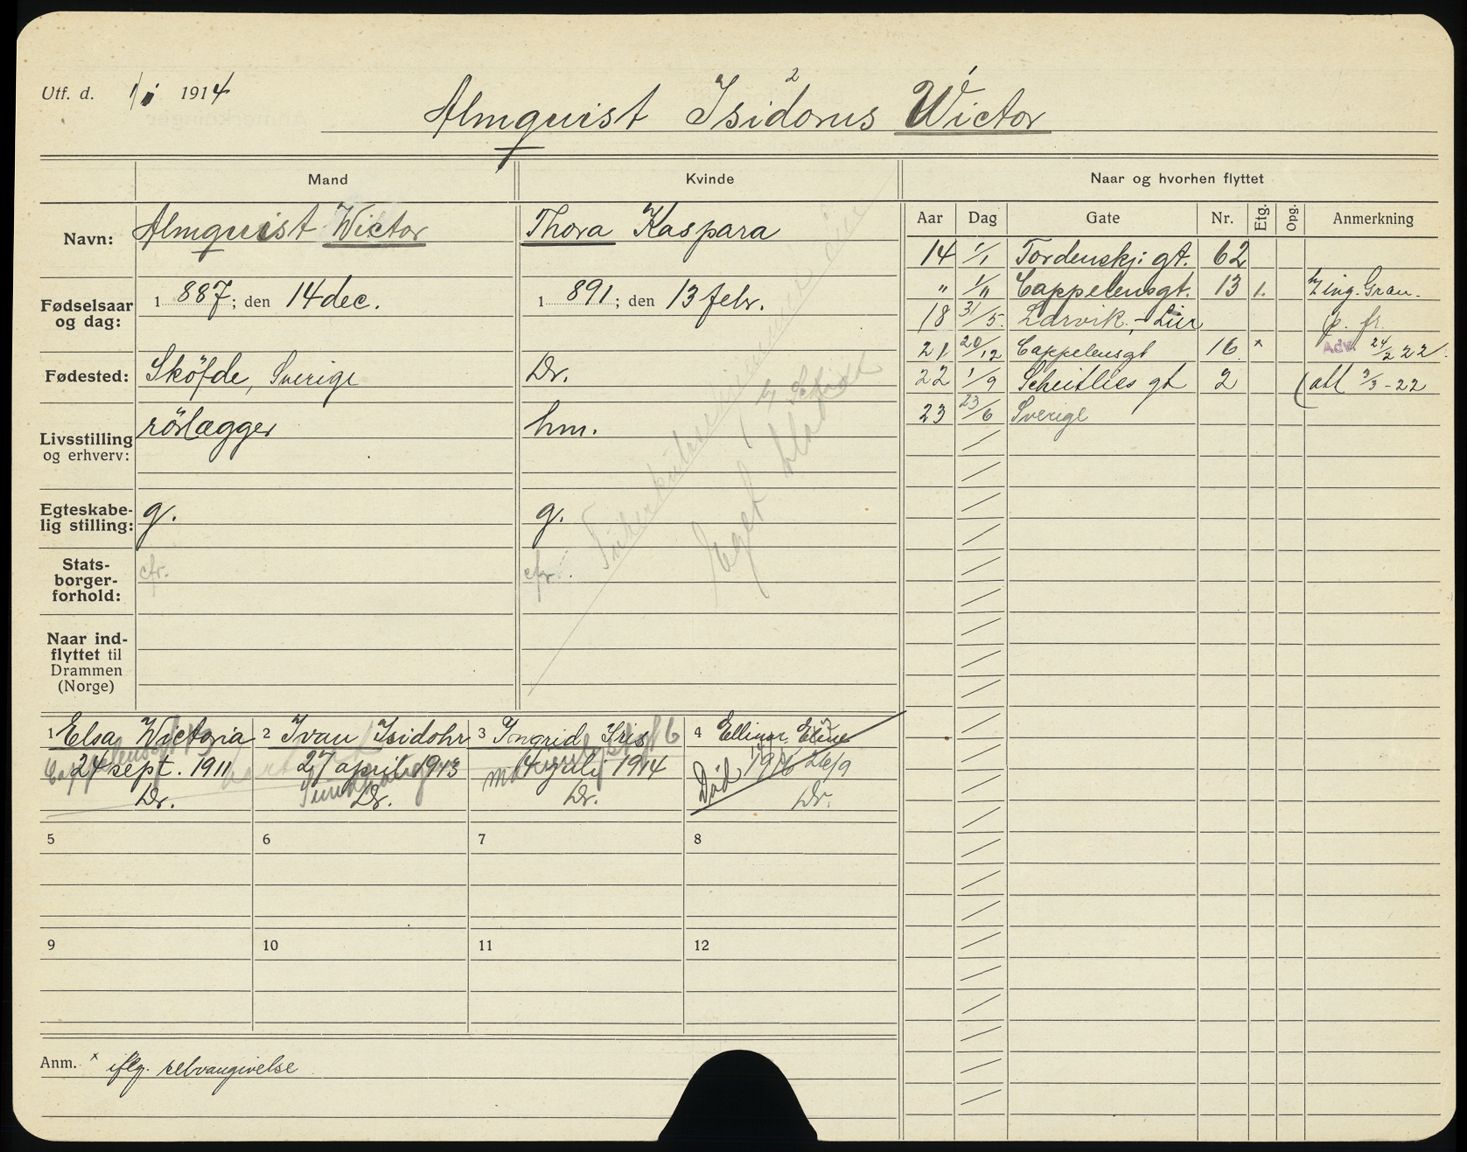 Utf. d. 1/1 1914
Almquist Isidorus 2 Wictor
Mand
Kvinde
Naar og hvorhen flyttet
Navn: Almquist Wictor
Thora Kaspara
Fødselsaar og dag: 1887; den 14 dec.
1891; den 13 febr.
Fødested: Sköfde, Sverige
Dr.
Livsstilling og erhverv: rörlægger
hm.
Egteskabelig stilling: g.
g.
Statsborgerforhold:
Naar indflyttet til Drammen (Norge)
Eget blad
1 Elsa Wictoria
24 sept. 1911
Dr.
2 Ivan Isidohr
27 april 1913
Dr.
3 Ingrid Iris
4 juli 1914
Dr.
4 Ellinor Eline
1916 26/9
Død
Dr.
5 6 7 8
9 10 11 12
Anm. x iflg. selvangivelse
Aar Dag Gate Nr. Etg. Opg. Anmerkning
14 1/1 Tordenskj. gt. 62
" 1/11 Cappelensgt. 13 1. Ing. Gran.
18 31/5. Larvik, - Lier p. fr.
21 20/12 Cappelensgt 16 x Adv. 24/2 22.
22 1/9 Scheitlies gt 2 (att 3/3-22
23 23/6 Sverige